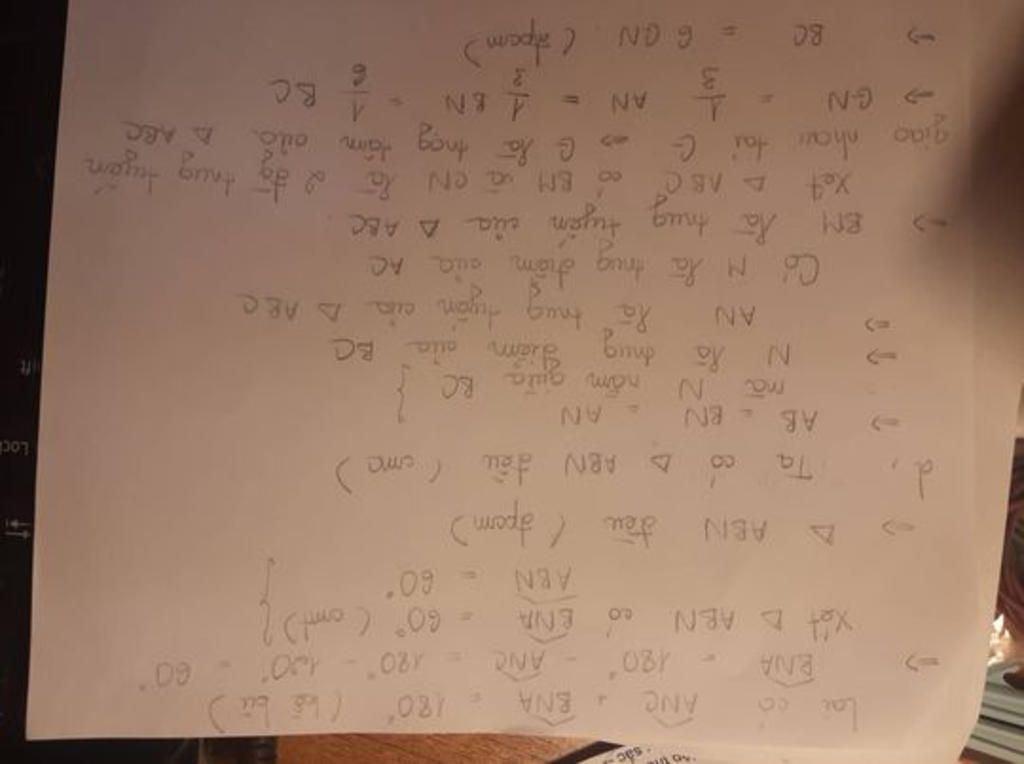 Lại có ANC + BNA = 180° (kề bù)
=> BNA = 180° - ANC = 180° - 120° = 60°
Xét Δ ABN có BNA = 60° (cmt) }
ABN = 60°
=> Δ ABN đều (đpcm)
d, Ta có Δ ABN đều (cmc)
=> AB = BN = AN }
mà N nằm giữa BC
=> N là trug điểm của BC
=> AN là trug tuyến của Δ ABC
Có M là trug điểm của AC
=> BM là trug tuyến của Δ ABC
Xét Δ ABC có BM và CN là 2 đg trug tuyến
giao nhau tại G => G là trọg tâm của Δ ABC
=> GN = 1/3 AN = 1/3 BN = 1/6 BC
=> BC = 6 GN (đpcm)
Lock